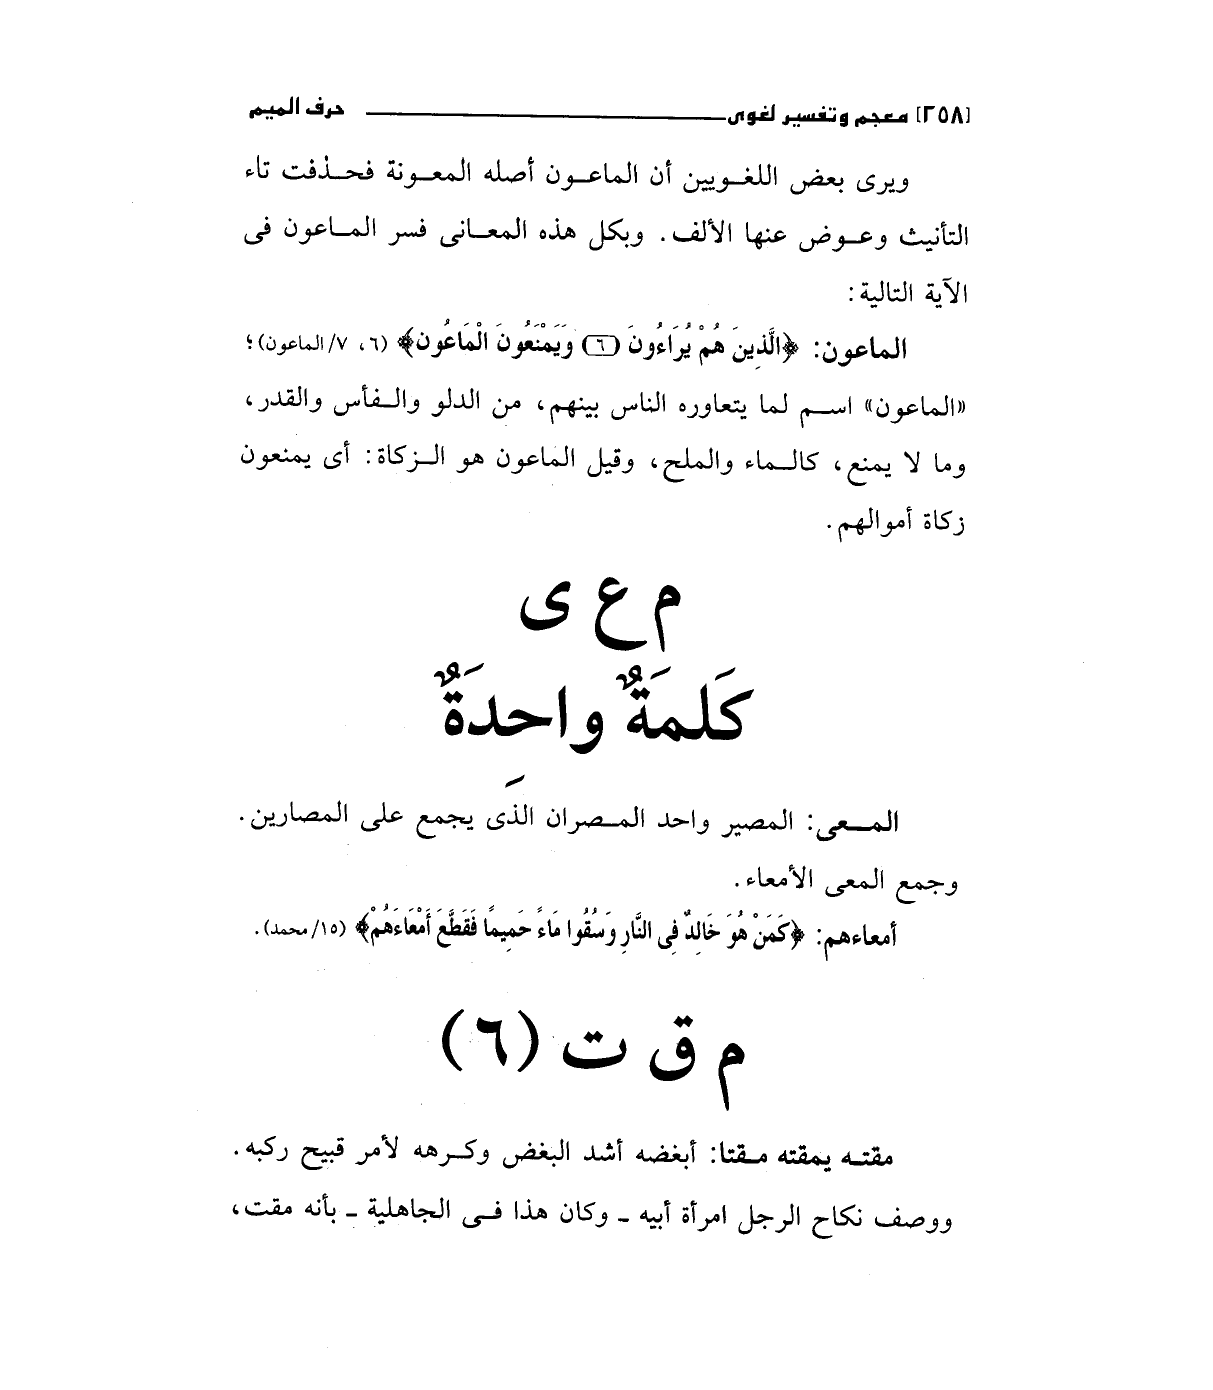 [٢٥٨] معجم وتفسير لغوى حرف الميم
ويرى بعض اللغويين أن الماعون أصله المعونة فحذفت تاء
التأنيث وعوض عنها الألف. وبكل هذه المعانى فسر الماعون فى
الآية التالية:
الماعون: ﴿الَّذِينَ هُمْ يُرَاءُونَ (٦) وَيَمْنَعُونَ الْمَاعُونَ﴾ (٦، ٧/ الماعون)؛
«الماعون» اسم لما يتعاوره الناس بينهم، من الدلو والفأس والقدر،
وما لا يمنع، كالماء والملح، وقيل الماعون هو الزكاة: أى يمنعون
زكاة أموالهم.
م ع ى
كَلمَةٌ واحِدَةٌ
المعى: المصير واحد المصران الذى يجمع على المصارين.
وجمع المعى الأمعاء.
أمعاءهم: ﴿كَمَنْ هُوَ خَالِدٌ فِى النَّارِ وَسُقُوا مَاءً حَمِيمًا فَقَطَّعَ أَمْعَاءَهُمْ﴾ (١٥/ محمد).
م ق ت (٦)
مقته يمقته مقتا: أبغضه أشد البغض وكرهه لأمر قبيح ركبه.
ووصف نكاح الرجل امرأة أبيه ـ وكان هذا فى الجاهلية ـ بأنه مقت،